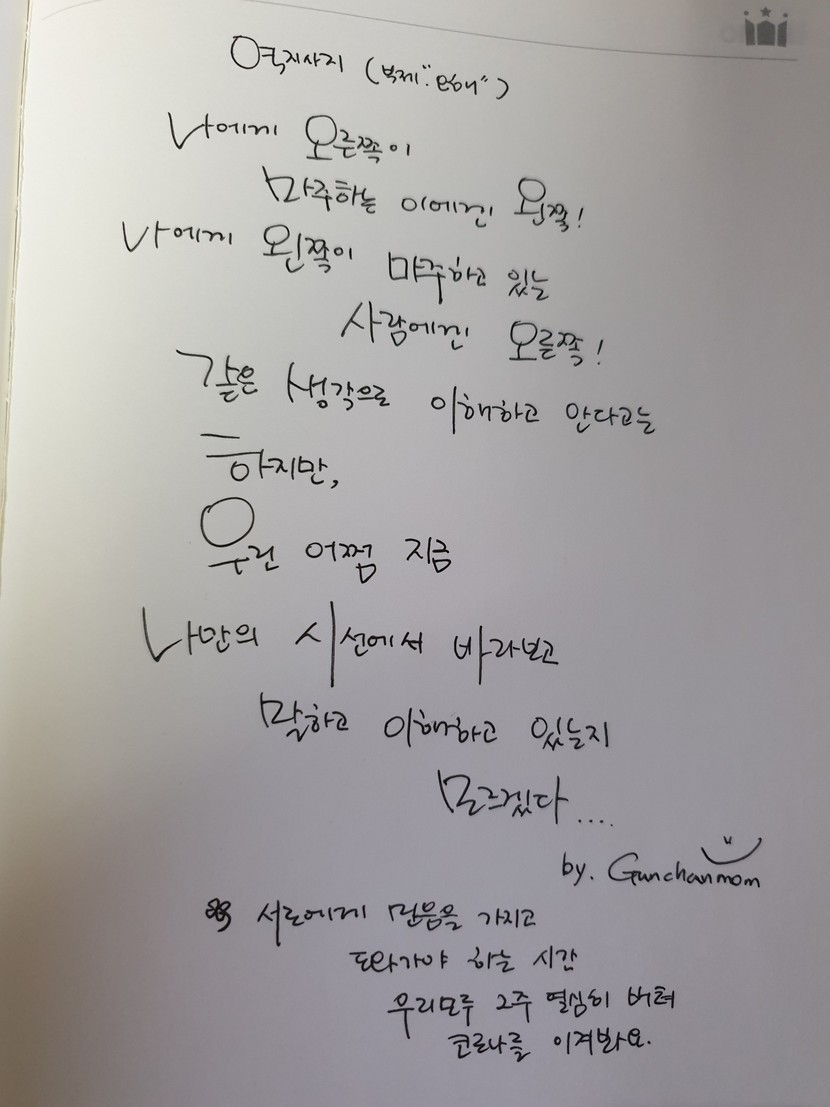 역지사지 (부제:"오해")
나에게 오른쪽이
마주하는 이에겐 왼쪽!
나에게 왼쪽이 마주하고 있는
사람에겐 오른쪽!
같은 생각으로 이해하고 안다고는
하지만,
우린 어쩜 지금
나만의 시선에서 바라보고
말하고 이해하고 있는지
모르겠다....
by. Gunchanmom
서로에게 믿음을 가지고
도와가야 하는 시간
우리모두 2주 열심히 버텨
코로나를 이겨봐요.